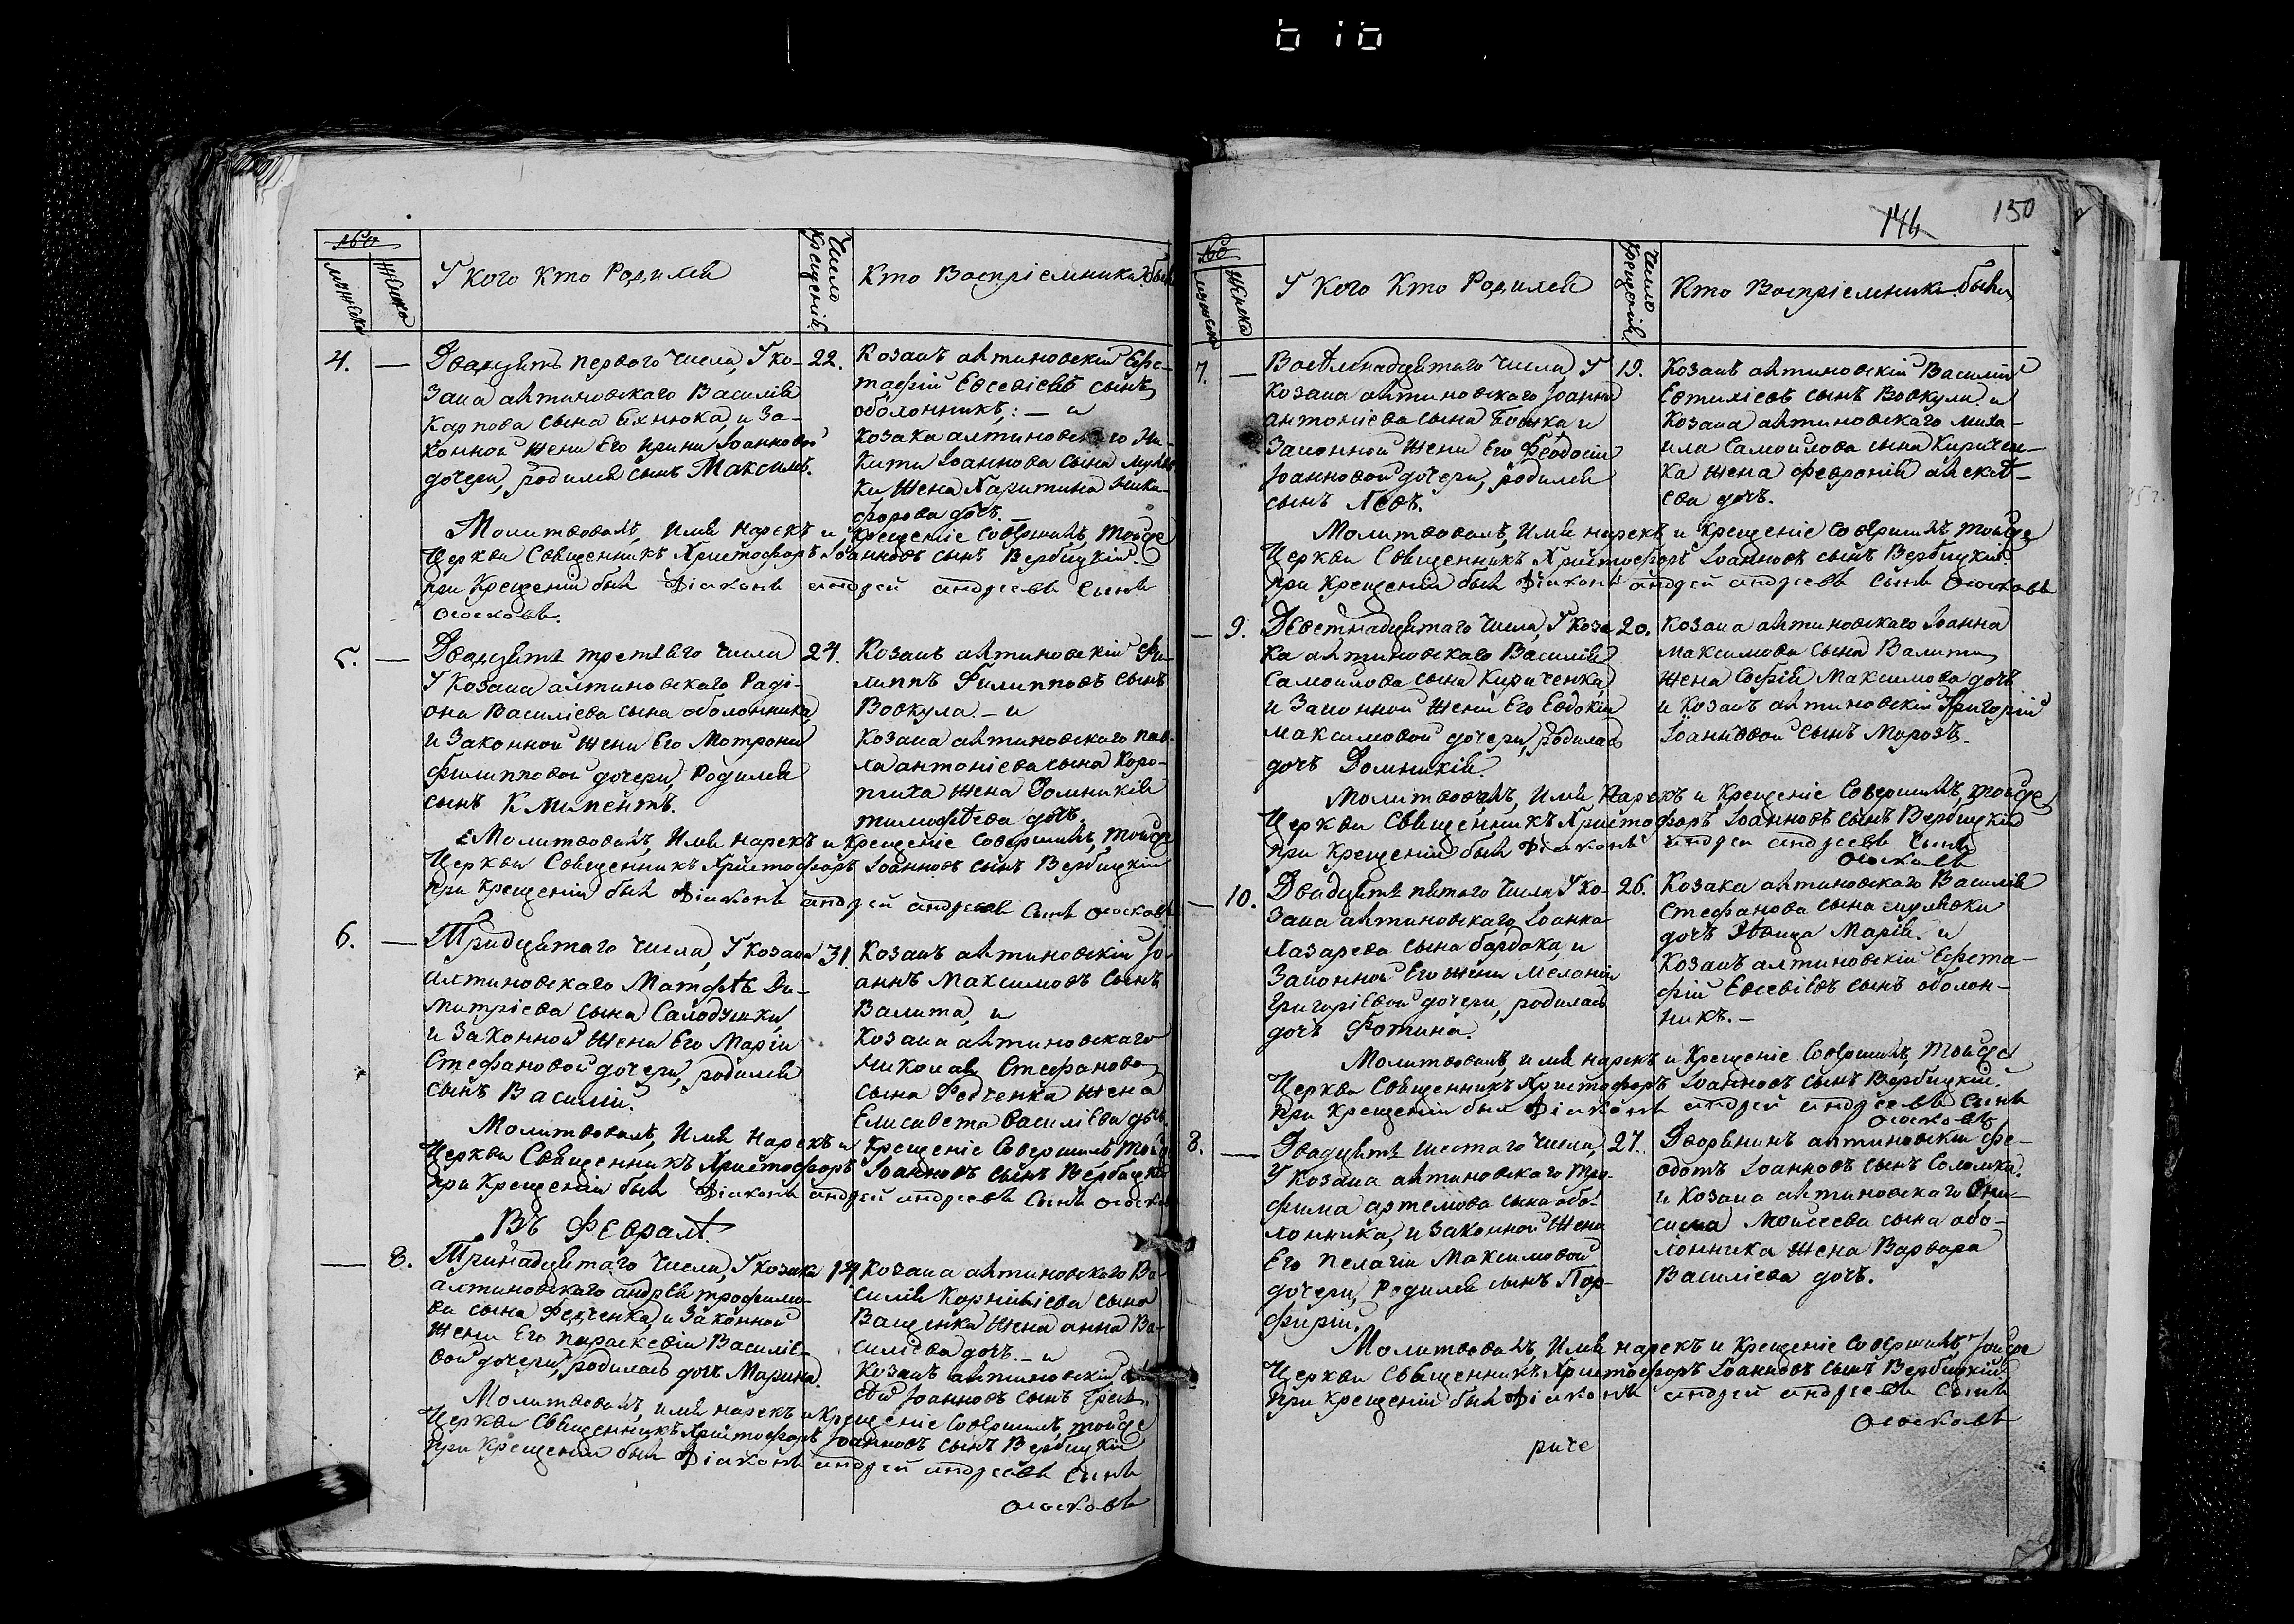 150
146
Число крещенія
У кого кто Родился
Кто Воспріемники были
4. — Двадцять первого числа, У ко- 22.
зака алтиновскаго Василія
Карпова сына Вхнюка, и За-
конной жены Его Ирины Іоанновой
дочери, родился сынъ Максимъ.
Козакъ алтиновскій Евс-
тафій Евсевіевъ сынъ
оболонникъ,: — и
козака алтиновскаго Ни-
киты Іоаннова сына
ки жена Харитина Ники-
форова дочъ. —
Молитвовалъ, Имя нарекъ и крещеніе Совершилъ, тойже
Церкви Священникъ Христофоръ Іоанновъ сынъ Вербицкій.
при Крещеніи былъ Діаконъ андрей андреевъ Сынъ
Ососковъ.
5. — Двадцять третяго числа 24.
У Козака алтиновскаго Раді-
она Василіева сына оболонника,
и Законной жены Его Мотроны
филипповой дочери, Родился
сынъ Климентъ.
Козакъ алтиновскій Фи-
липпъ Филипповъ сынъ
Вовкула. — и
Козака алтиновскаго пав-
ла антоніева сына Коро-
жена Домникія
тимофѣева дочъ.
Молитвовалъ, Имя нарекъ и Крещеніе Совершилъ, тойже
Церкви Священникъ Христофоръ Іоанновъ сынъ Вербицкій
при крещеніи былъ Діаконъ андрей андреевъ Сынъ Ососковъ
6. — Тридцятаго числа, У козака 31.
алтиновскаго Матфѣя Ди-
митріева сына Самодушки,
и Законной жены Его Маріи
Стефановой дочери, родился
сынъ Василій.
Козакъ алтиновскій Іо-
аннъ Максимовъ Сынъ
Валита, и
Козака алтиновскаго
Николая Стефанова
сына Федченка жена
Елисавета Василіева дочъ.
Молитвовалъ, Имя Нарекъ и Крещеніе Совершилъ Тойже
Церкви Священникъ Христофоръ Іоанновъ сынъ Вербицкій
при Крещеніи былъ Діаконъ андрей андреевъ Сынъ Ососковъ
Въ Февралѣ.
— 8. Тринадцятаго числа, У козака 14
алтиновскаго андрея трофимо-
ва сына Федченка, и Законной
жены Его параскевіи Василіе-
вой дочери, родилась дочъ Марина.
Козака алтиновскаго Ва-
силія Корниліева сына
Ващенка жена анна Ва-
силіева дочъ. — и
Козакъ алтиновскій
Іоанновъ сынъ
Молитвовалъ, имя нарекъ и Крещеніе Совершилъ, тойже
Церкви Священникъ Христофоръ Іоанновъ сынъ Вербицкій
при Крещеніи былъ Діаконъ андрей андреевъ Сынъ
Ососковъ
Число крещеній
У Кого Кто Родился
Кто Воспріемники были
7. — Восѣмнадцятаго числа, У 19.
Козака алтиновскаго Іоанна
антоніева сына и
Законной жены Его Ѳеодосіи
Іоанновой дочери, родился
сынъ Левъ.
Козакъ алтиновскій Василій
Евтихіевъ сынъ Вовкула. и
Козака алтиновскаго Миха-
ила Самойлова сына Киричен-
ка жена Февронія алексѣ-
ева дочъ.
Молитвовалъ, Имя нарекъ и Крещеніе Совершилъ, тойже
Церкви Священникъ Христофоръ Іоанновъ сынъ Вербицкій.
при Крещеніи былъ Діаконъ андрей андреевъ сынъ Ососковъ
— 9. Девятнадцятаго числа, У коза- 20.
ка алтиновскаго Василія
Самойлова сына Кириченка,
и Законной жены Его Евдокіи
Максимовой дочери, родилась
дочъ Домникія.
Козака алтиновскаго Іоанна
Максимова сына Валиты
жена Софія Максимова дочъ
и Козакъ алтиновскій Григорій
Іоанновой сынъ Морозъ.
Молитвовалъ, Имя Нарекъ и Крещеніе Совершилъ, тойже
Церкви Священникъ Христофоръ Іоанновъ сынъ Вербицкій
при Крещеніи былъ Діаконъ андрей андреевъ Сынъ
Ососковъ
— 10. Двадцять пятого числа У ко- 26.
зака алтиновскаго Іоанна
Лазарева сына бардака, и
Законной Его жены Меланіи
Григоріевой дочери, родилась
дочъ Фотина.
Козака алтиновскаго Василія
Стефанова сына
дочъ дѣвица Марія. и
Козакъ алтиновскій Еѵста-
фій Евсевіевъ сынъ оболон-
никъ. —
Молитвовалъ, имя нарекъ и Крещеніе Совершилъ, тойже
Церкви Священникъ Христофоръ Іоанновъ сынъ Вербицкій.
при Крещеніи былъ Діаконъ андрей андреевъ Сынъ
Ососковъ
8. — Двадцять шестаго числа, 27.
У Козака алтиновскаго Тро-
фима артемова сына обо-
лонника, и Законной жены
Его Пелагіи Максимовой
дочери, Родился сынъ Пор-
фирій.
Дворянинъ алтиновскій Фе-
одотъ Іоанновъ сынъ Соломка.
и Козака алтиновскаго Они-
сима Моисеева сына обо-
лонника жена Варвара
Василіева дочъ.
Молитвовалъ, Имя нарекъ и Крещеніе Совершилъ, тойже
Церкви Священникъ Христофоръ Іоанновъ сынъ Вербицкій,
при Крещеніи былъ Діаконъ андрей андреевъ Сынъ
Ососковъ